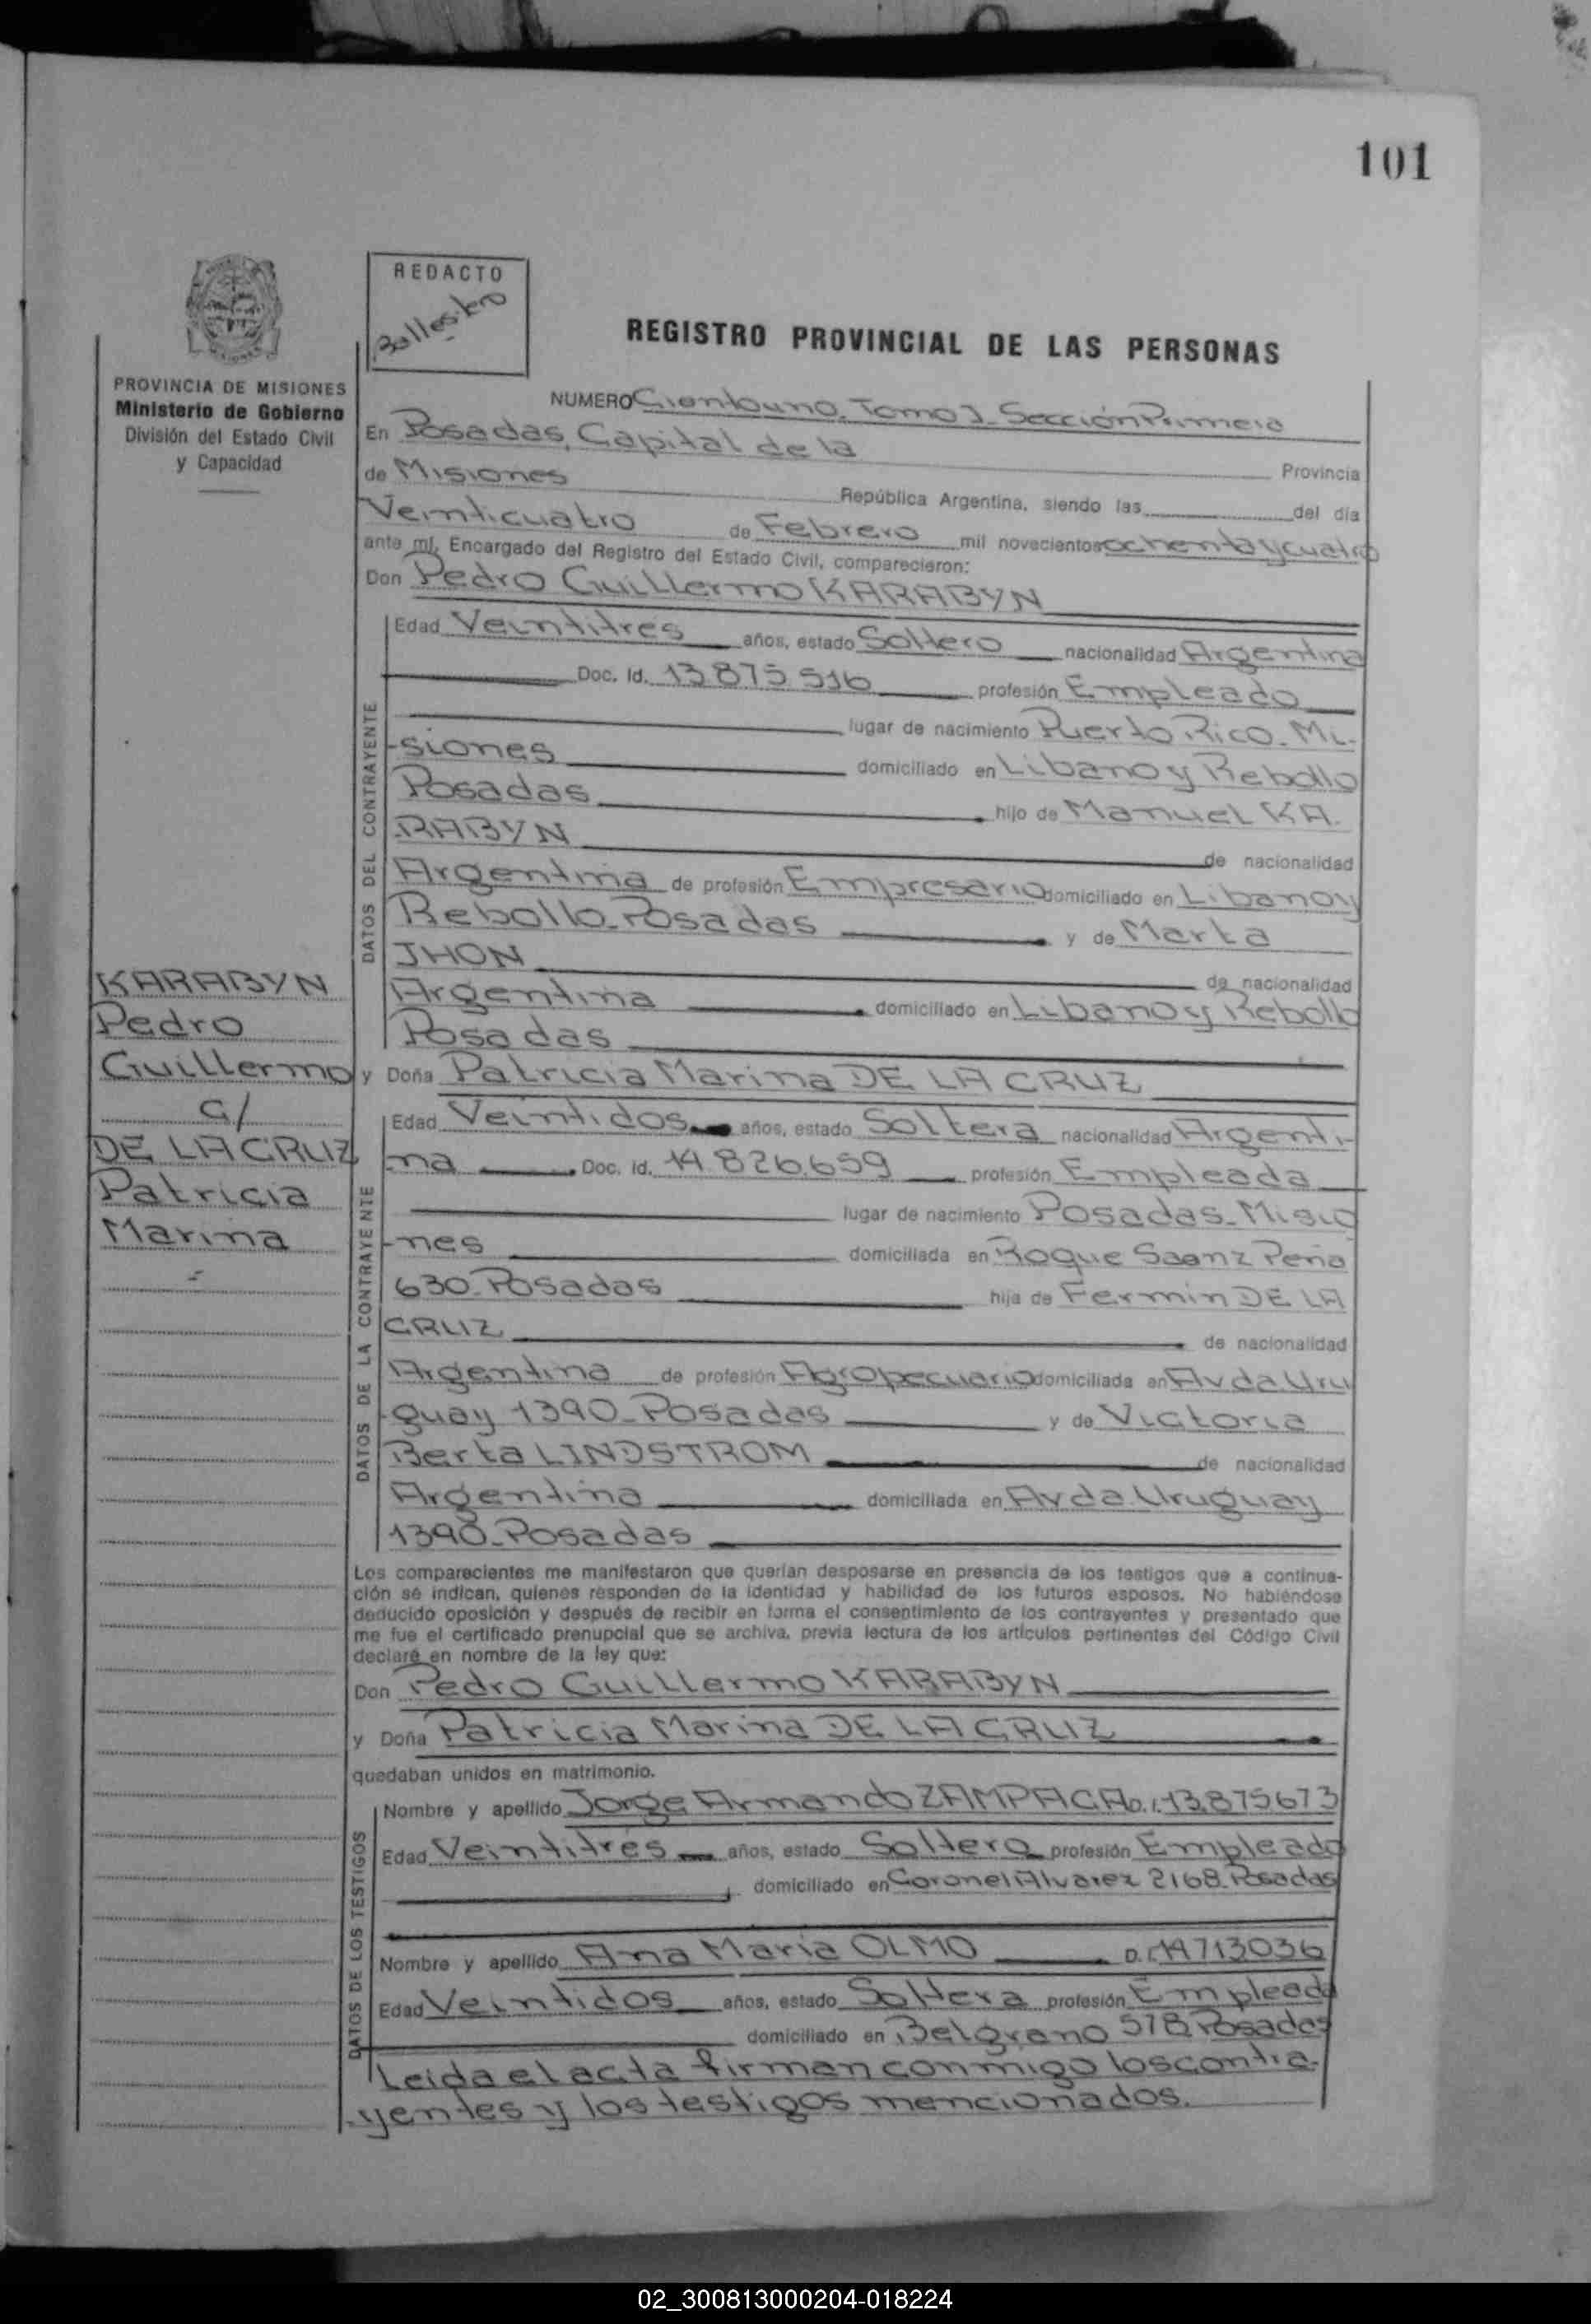 101
REDACTO
Ballestero
REGISTRO PROVINCIAL DE LAS PERSONAS
PROVINCIA DE MISIONES
Ministerio de Gobierno
División del Estado Civil
y Capacidad
NUMERO Ciento uno. Tomo I. Sección Primera
En Posadas, Capital de la Provincia
de Misiones República Argentina, siendo las del día
Veinticuatro de Febrero mil novecientos ochenta y cuatro
ante mí, Encargado del Registro del Estado Civil, comparecieron:
Don Pedro Guillermo KARABYN
DATOS DEL CONTRAYENTE
Edad Veintitres años, estado Soltero nacionalidad Argentina
Doc. Id. 13875516 profesión Empleado
lugar de nacimiento Puerto Rico. Mi-
-siones domiciliado en Libano y Rebollo
Posadas hijo de Manuel KA.
RABYN de nacionalidad
Argentina de profesión Empresario domiciliado en Libano y
Rebollo. Posadas y de Marta
JHON de nacionalidad
Argentina domiciliado en Libano y Rebollo
Posadas
KARABYN
Pedro
Guillermo
c/
DE LA CRUZ
Patricia
Marina
y Doña Patricia Marina DE LA CRUZ
DATOS DE LA CONTRAYENTE
Edad Veintidos años, estado Soltera nacionalidad Argenti-
-na Doc. Id. 14.826.659 profesión Empleada
lugar de nacimiento Posadas. Misio
-nes domiciliada en Roque Saenz Peña
630. Posadas hija de Fermin DE LA
CRUZ de nacionalidad
Argentina de profesión Agropecuario domiciliada en Avda Uru
-guay 1390. Posadas y de Victoria
Berta LINDSTROM de nacionalidad
Argentina domiciliada en Avda Uruguay
1390. Posadas
Los comparecientes me manifestaron que querían desposarse en presencia de los testigos que a continua-
ción se indican, quienes responden de la identidad y habilidad de los futuros esposos. No habiéndose
deducido oposición y después de recibir en forma el consentimiento de los contrayentes y presentado que
me fue el certificado prenupcial que se archiva, previa lectura de los artículos pertinentes del Código Civil
declaré en nombre de la ley que:
Don Pedro Guillermo KARABYN
y Doña Patricia Marina DE LA CRUZ
quedaban unidos en matrimonio.
DATOS DE LOS TESTIGOS
Nombre y apellido Jorge Armando ZAMPACA D.I. 13.875673
Edad Veintitres años, estado Soltero profesión Empleado
domiciliado en Coronel Alvarez 2168. Posadas
Nombre y apellido Ana Maria OLMO D.I. 14713036
Edad Veintidos años, estado Soltera profesión Empleada
domiciliado en Belgrano 578. Posadas
Leida el acta firman conmigo los contra-
-yentes y los testigos mencionados.
02_300813000204-018224